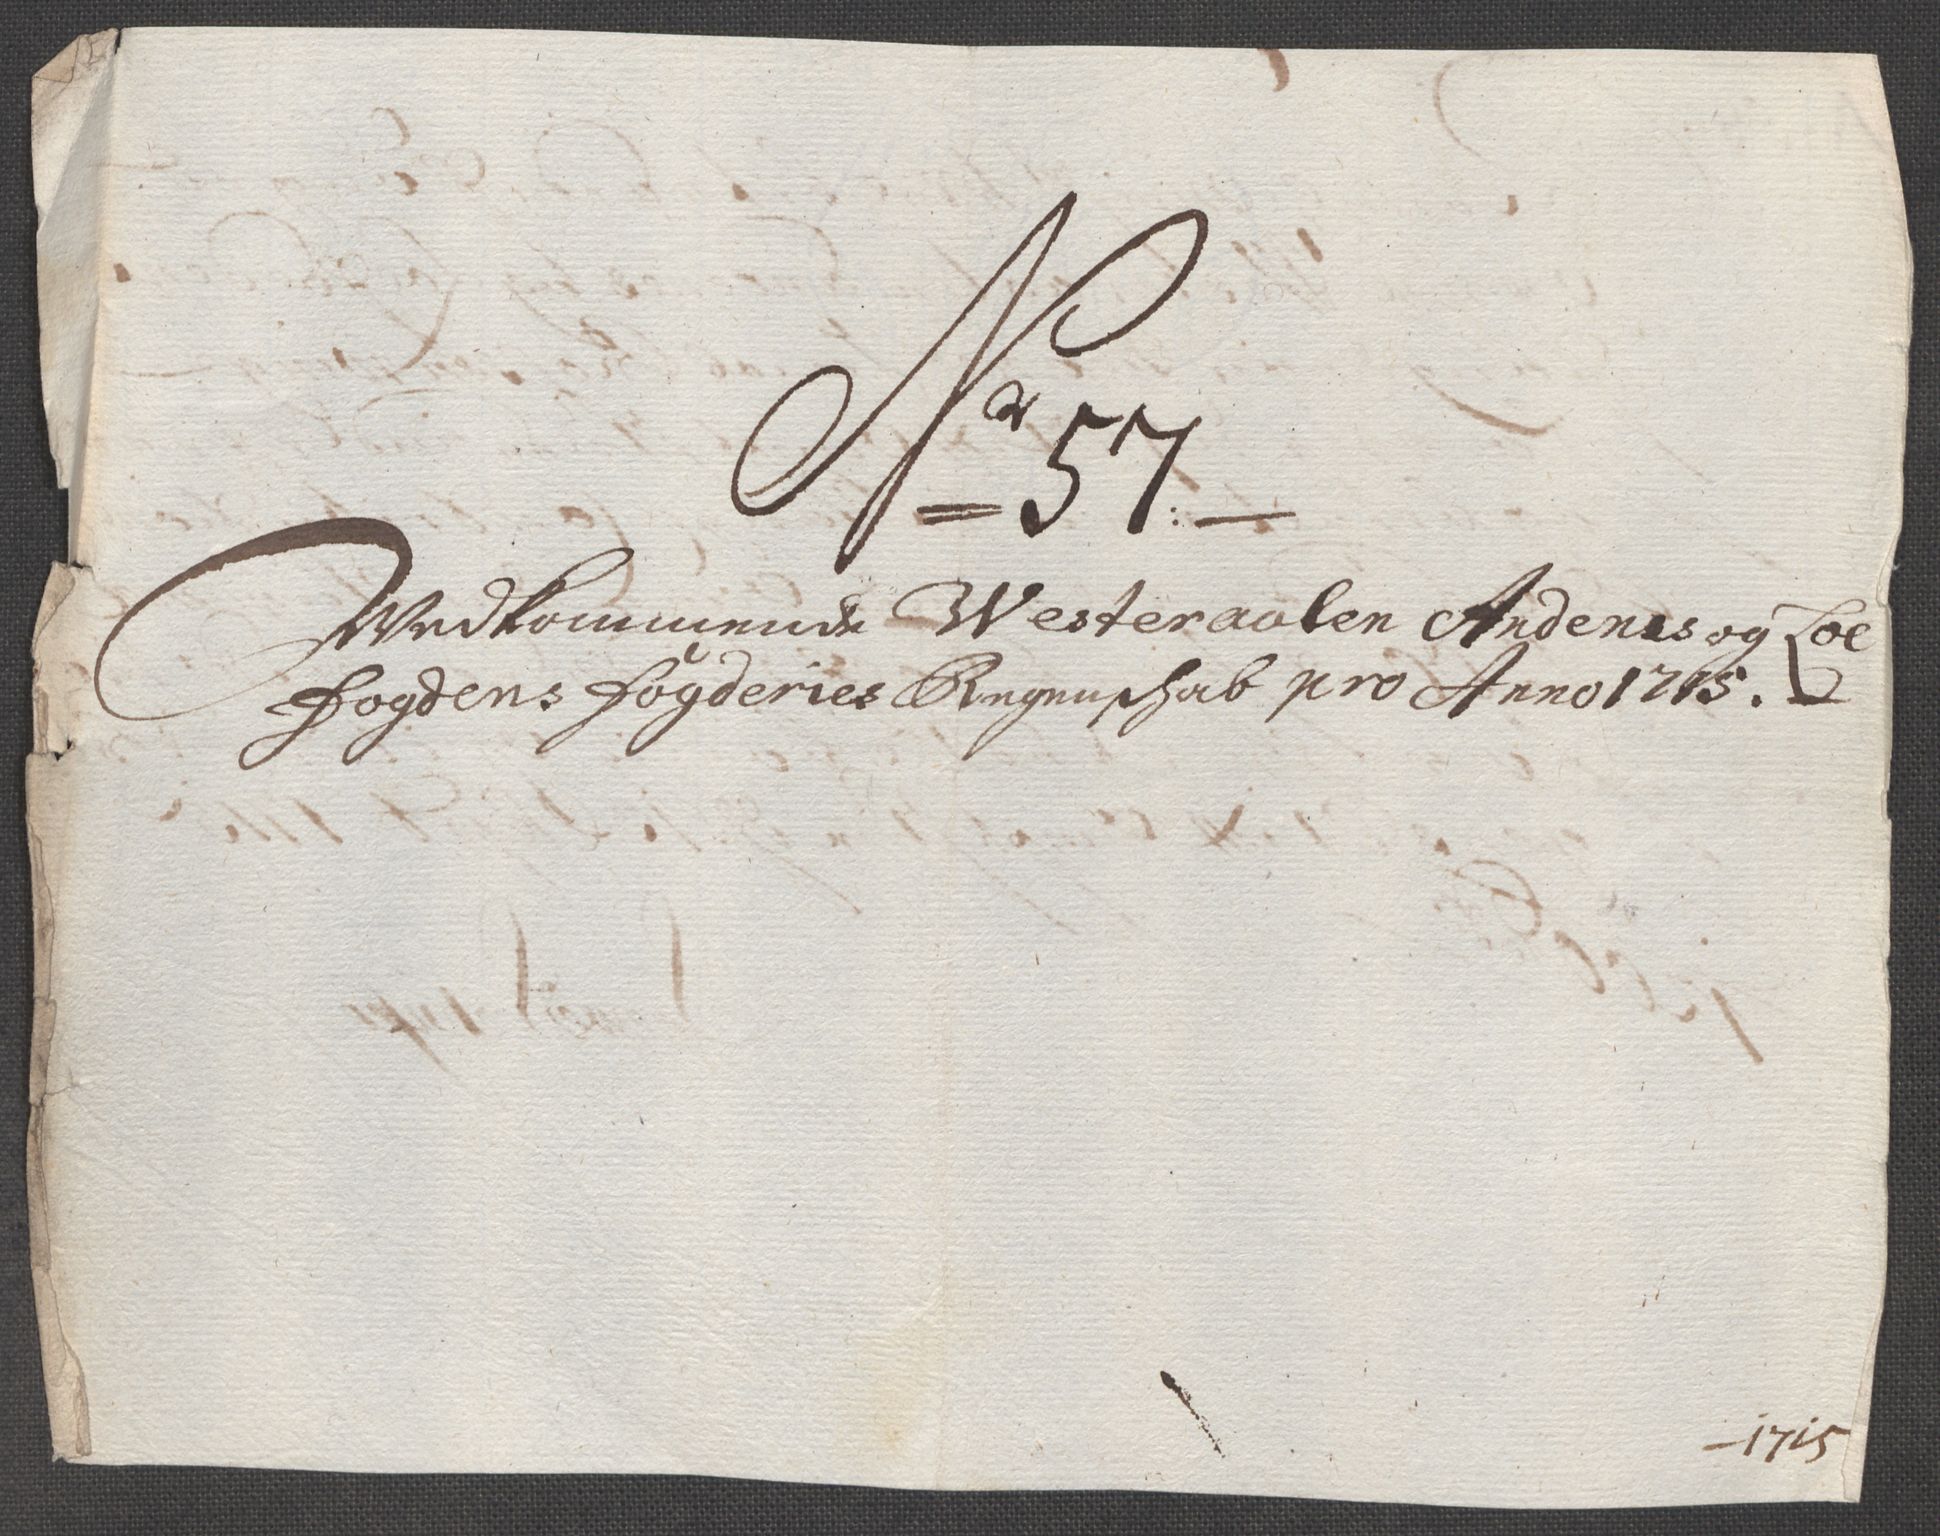 No 57.
Wedkommende Westeraalen Andenes og Loe
fogdens fögderies Regnschab pro Anno 1715.
1715